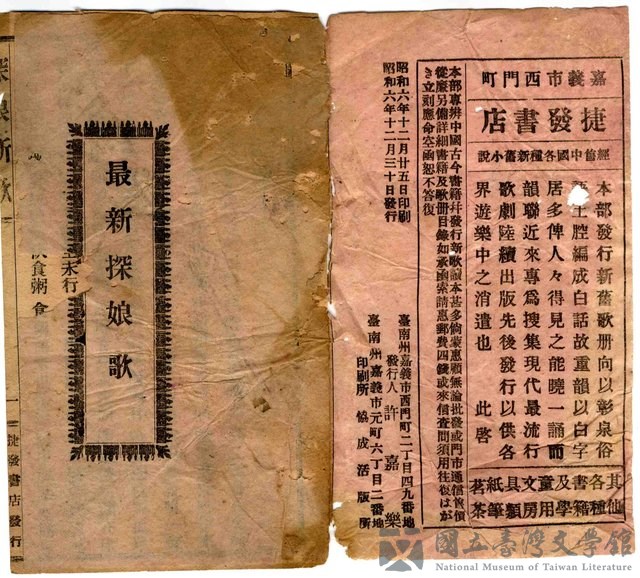 嘉義市西門町
捷發書店
經售中國各種新舊小說
本部發行新舊歌册向以彰泉俗
土腔編成白話故重韻以白字
居多俾人々得見之能曉一誦而
韻聯近來專爲搜集現代最流行
歌劇陸續出版先後發行以供各
界遊樂中之消遣也　此啓
其他各種書籍及學童用文房具類紙筆茗茶
本部專辨中國古今書籍幷發行新歌
從廉另備詳細書籍及歌册目錄如承函索請惠郵費四錢或來信查問須用往復はが
き立則應命空函恕不答復
昭和六年十二月廿五日印刷
昭和六年十二月三十日發行
臺南州嘉義市西門町二丁目四九番地
發行人　許嘉樂
臺南州嘉義市元町六丁目二番地
印刷所　協成活版所
最新探娘歌
飲食粥
一
捷發書店發行
國立臺灣文學館
National Museum of Taiwan Literature